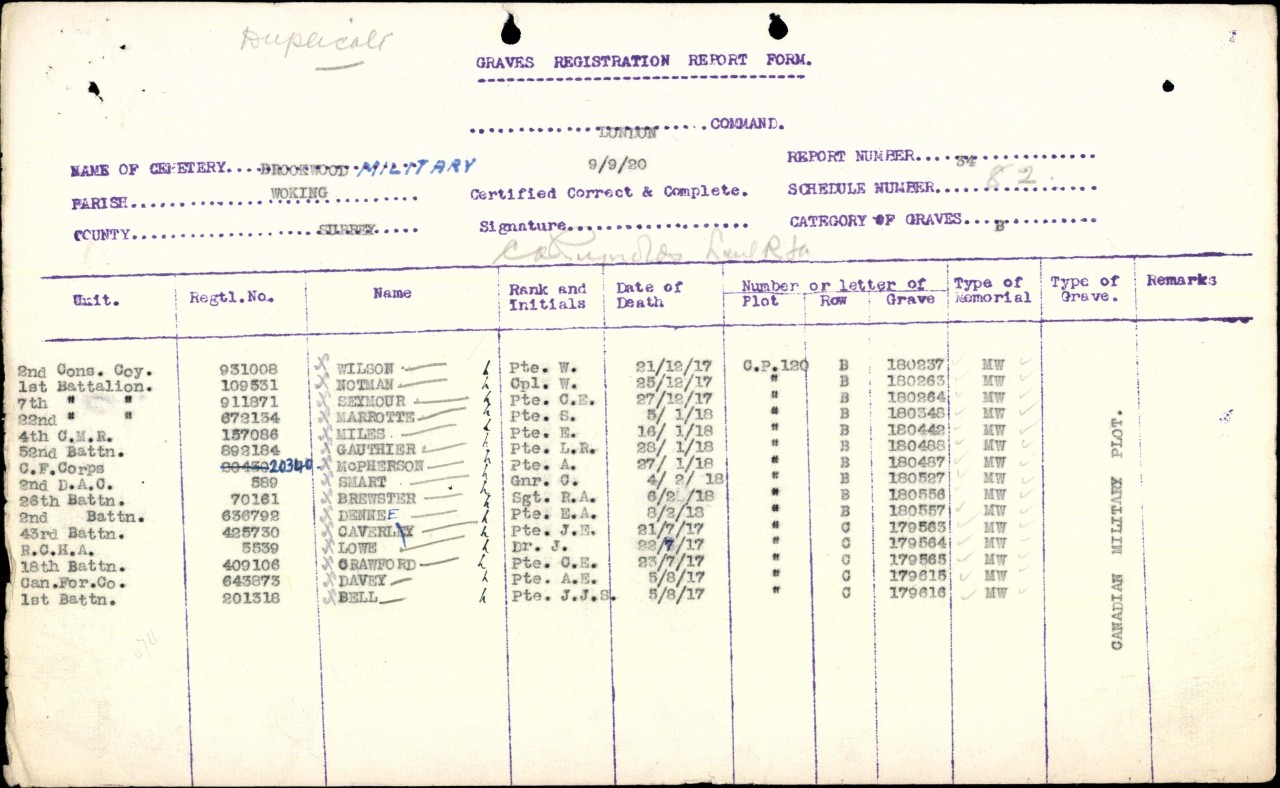 Duplicate
GRAVES REGISTRATION REPORT FORM.
LONDON COMMAND.
NAME OF CEMETERY....BROOKWOOD MILITARY 9/9/20 REPORT NUMBER.....34
PARISH WOKING Certified Correct & Complete. SCHEDULE NUMBER 82
COUNTY SURREY Signature CATEGORY OF GRAVES....B
Unit. Regtl.No. Name Rank and Initials Date of Death Number or letter of Plot Row Grave Type of Memorial Type of Grave. Remarks
2nd Cons. Coy. 931008 WILSON h Pte. W. 21/12/17 C.P.120 B 180237 MW
1st Battalion. 109531 NOTMAN h Cpl. W. 25/12/17 " B 180263 MW
7th " " 911871 SEYMOUR h Pte. C.E. 27/12/17 " B 180264 MW
22nd " 672134 MARROTTE h Pte. S. 5/ 1/18 " B 180348 MW
4th C.M.R. 157086 MILES h Pte. E. 16/ 1/18 " B 180442 MW
52nd Battn. 892184 GAUTHIER h Pte. L.R. 28/ 1/18 " B 180488 MW
C.F.Corps 20340 McPHERSON h Pte. A. 27/ 1/18 " B 180487 MW
2nd D.A.C. 589 SMART h Gnr. C. 4/ 2/ 18 " B 180527 MW
26th Battn. 70161 BREWSTER h Sgt. R.A. 6/2 /18 " B 180556 MW
2nd Battn. 636792 DENNEE h Pte. E.A. 8/2/18 " B 180557 MW
43rd Battn. 425730 CAVERLY h Pte. J.E. 21/7/17 " C 179563 MW
R.C.H.A. 5539 LOWE h Dr. J. 22/7/17 " C 179564 MW
18th Battn. 409106 CRAWFORD h Pte. C.E. 23/7/17 " C 179565 MW
Can.For.Co. 643873 DAVEY h Pte. A.E. 5/8/17 " C 179615 MW
1st Battn. 201318 BELL h Pte. J.J.S. 5/8/17 " C 179616 MW
CANADIAN MILITARY PLOT.